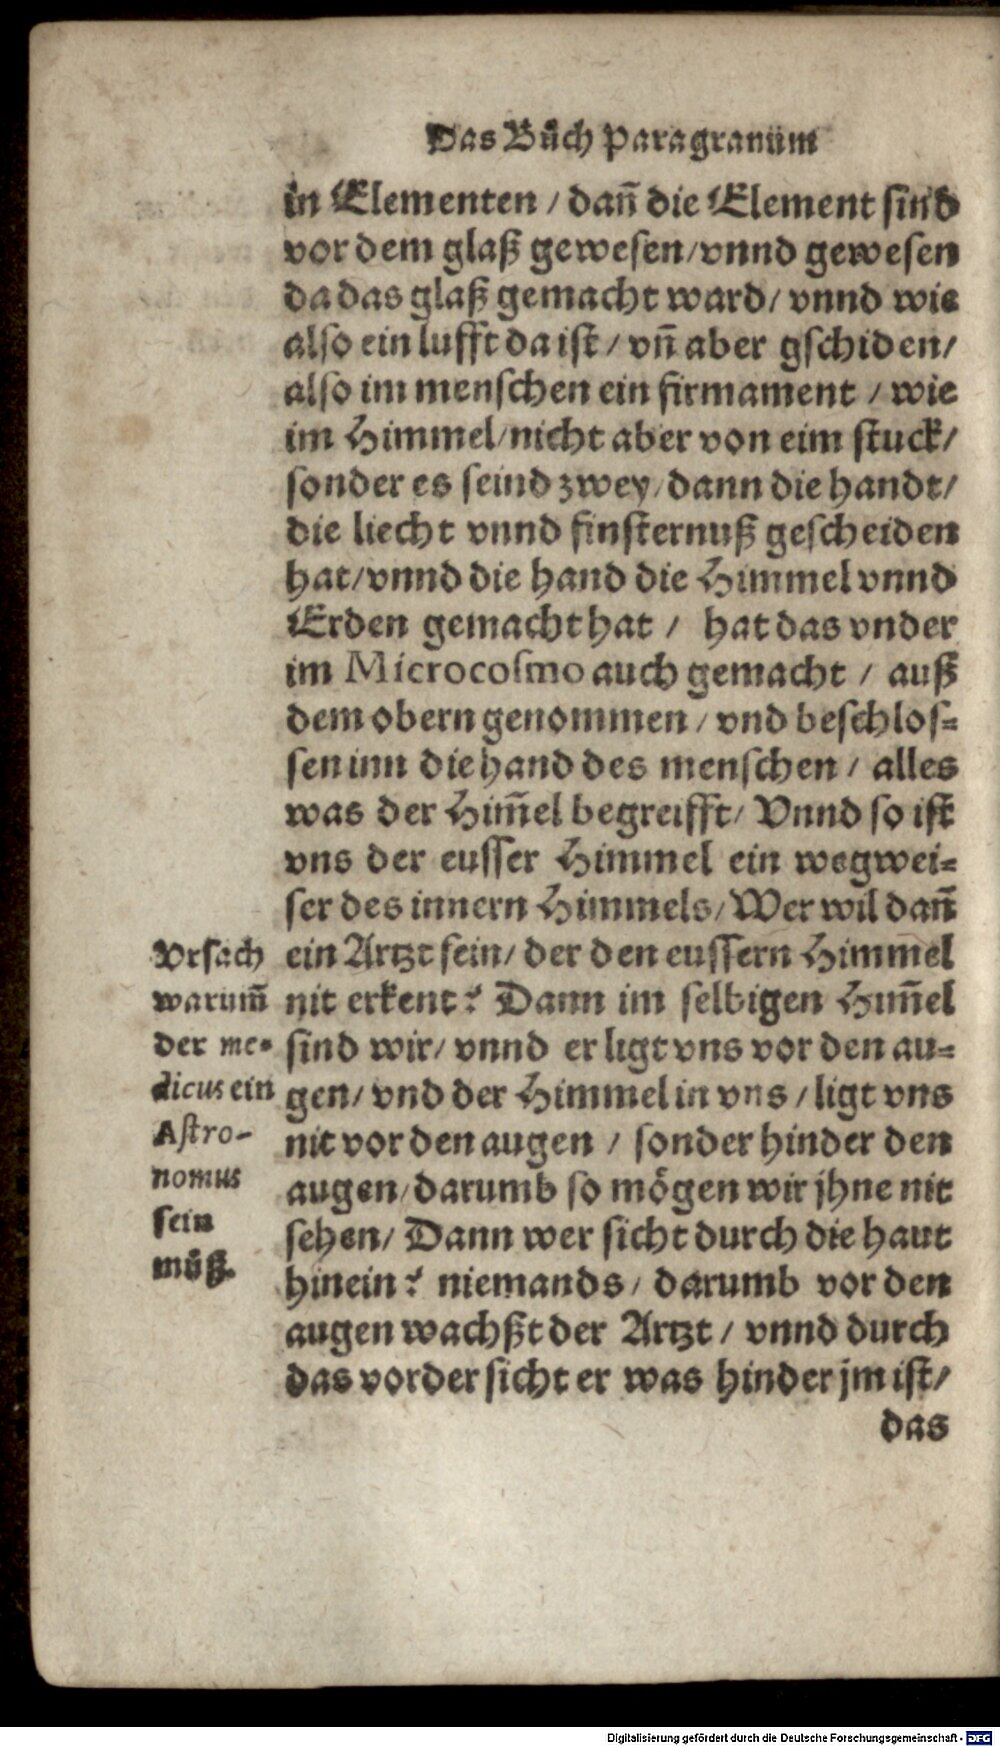 Das Bůch Paragranum
in Elementen / dañ die Element sind
vor dem glaß gewesen/vnnd gewesen
da das glaß gemacht ward/ vnnd wie
also ein lufft da ist / vñ aber gschiden/
also im menschen ein firmament / wie
im Himmel/nicht aber von eim stuck/
sonder es seind zwey/dann die handt/
die liecht vnnd finsternuß gescheiden
hat/vnnd die hand die Himmel vnnd
Erden gemacht hat / hat das vnder
im Microcosmo auch gemacht / auß
dem obern genommen / vnd beschlos=
sen inn die hand des menschen / alles
was der Him̃el begreifft/ Vnnd so ist
vns der eusser Himmel ein wegwei=
ser des innern Himmels/ Wer wil dañ
ein Artzt sein/ der den eussern Himmel
nit erkent? Dann im selbigen Him̃el
sind wir/ vnnd er ligt vns vor den au=
gen/ vnd der Himmel in vns / ligt vns
nit vor den augen / sonder hinder den
augen/darumb so mögen wir jhne nit
sehen/ Dann wer sicht durch die haut
hinein? niemands/ darumb vor den
augen wachßt der Artzt / vnnd durch
das vorder sicht er was hinder jm ist/
das
Vrsach
warum̃
der me-
dicus ein
Astro-
nomus
sein
můß.
Digitalisierung gefördert durch die Deutsche Forschungsgemeinschaft - DFG